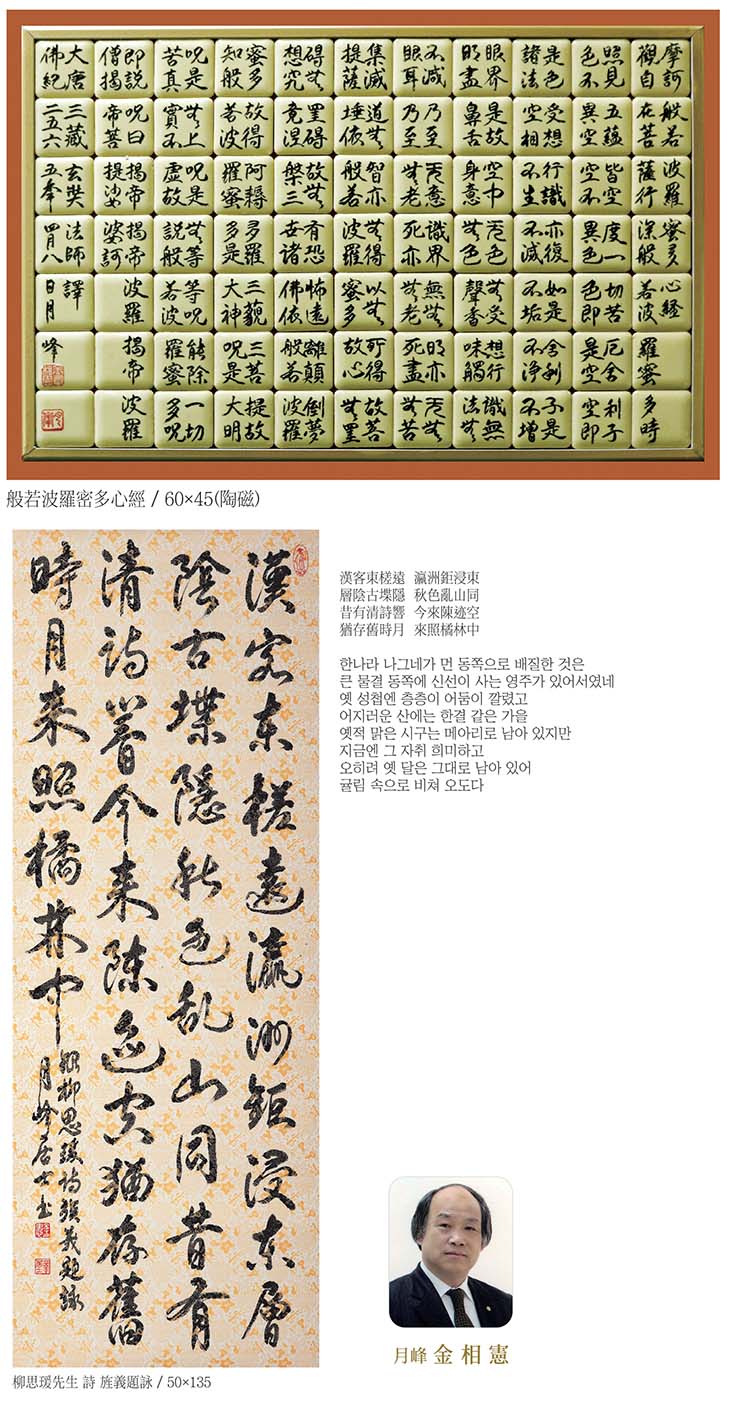 摩訶般若波羅蜜多心経
觀自在菩薩行深般若波羅蜜多時
照見五蘊皆空度一切苦厄舍利子
色不異空空不異色色即是空空即
是色受想行識亦復如是舍利子是
諸法空相不生不滅不垢不淨不增
眼界是故空中无色无受想行識無
明盡鼻舌身意无色聲香味觸法无
不減乃至无意識界無无明亦无无
眼耳乃至无老死亦无老死盡无苦
集滅道无智亦无得以无所得故菩
提薩埵依般若波羅蜜多故心无罣
碍无罣碍故无有恐怖遠離顛倒夢
想究竟涅槃三世諸佛依般若波羅
蜜多故得阿耨多羅三藐三菩提故
知般若波羅蜜多是大神呪是大明
呪是无上呪是无等等呪能除一切
苦真實不虛故説般若波羅蜜多呪
即説呪曰揭帝揭帝波羅揭帝波羅
僧揭帝菩提娑婆訶
大唐三藏玄奘法師譯
佛紀二五六五年四月八日月峰
般若波羅密多心經 / 60×45(陶磁)
漢客東槎遠瀛洲鉅浸東層
陰古堞隱秋色乱山同昔有
清詩響今来陳迹空猶存舊
時月来照橘林中
録柳思瑗詩旌義題詠
月峰居士書
漢客東槎遠 瀛洲鉅浸東
層陰古堞隱 秋色亂山同
昔有清詩響 今來陳迹空
猶存舊時月 來照橘林中
한나라 나그네가 먼 동쪽으로 배질한 것은
큰 물결 동쪽에 신선이 사는 영주가 있어서였네
옛 성첩엔 층층이 어둠이 깔렸고
어지러운 산에는 한결 같은 가을
옛적 맑은 시구는 메아리로 남아 있지만
지금엔 그 자취 희미하고
오히려 옛 달은 그대로 남아 있어
귤림 속으로 비쳐 오도다
月峰 金相憲
柳思瑗先生 詩 旌義題詠 / 50×135